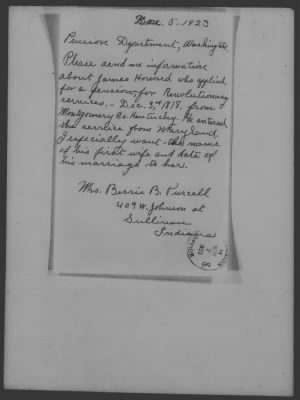 Mar. 5-1923
Pension Department, Washington
Please send me information
about James Howard who applied
for a pension, for Revolutionary
services. - Dec. 3rd 1818. from
Montgomery Co. Kentucky. He entered
the service from Maryland.
I especially want the name
of his first wife and date of
his marriage to her.
Mrs. Bessie B. Purcell
409 W. Johnson st
Sullivan
Indiana